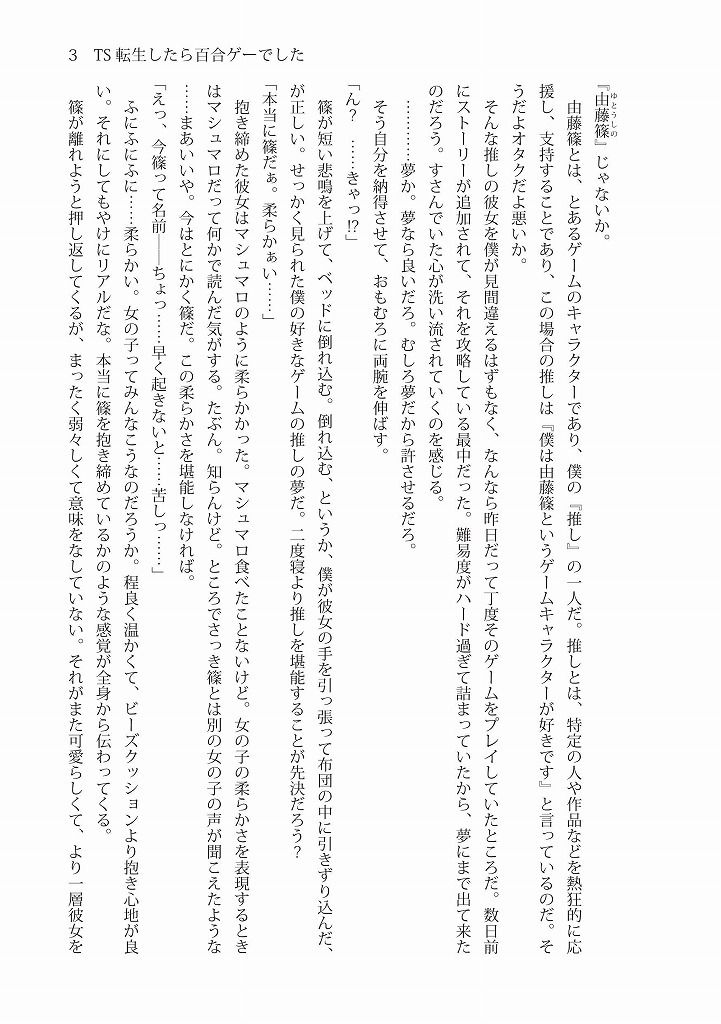 3 TS転生したら百合ゲーでした
『由藤篠』じゃないか。
ゆとうしの
由藤篠とは、とあるゲームのキャラクターであり、僕の『推し』の一人だ。推しとは、特定の人や作品などを熱狂的に応
援し、支持することであり、この場合の推しは『僕は由藤篠というゲームキャラクターが好きです』と言っているのだ。そ
うだよオタクだよ悪いか。
そんな推しの彼女を僕が見間違えるはずもなく、なんなら昨日だって丁度そのゲームをプレイしていたところだ。数日前
にストーリーが追加されて、それを攻略している最中だった。難易度がハード過ぎて詰まっていたから、夢にまで出て来た
のだろう。すさんでいた心が洗い流されていくのを感じる。
…………夢か。夢なら良いだろ。むしろ夢だから許させるだろ。
そう自分を納得させて、おもむろに両腕を伸ばす。
「ん？　……きゃっ!?」
篠が短い悲鳴を上げて、ベッドに倒れ込む。倒れ込む、というか、僕が彼女の手を引っ張って布団の中に引きずり込んだ、
が正しい。せっかく見られた僕の好きなゲームの推しの夢だ。二度寝より推しを堪能することが先決だろう？
「本当に篠だぁ。柔らかぁい……」
抱き締めた彼女はマシュマロのように柔らかかった。マシュマロ食べたことないけど。女の子の柔らかさを表現するとき
はマシュマロだって何かで読んだ気がする。たぶん。知らんけど。ところでさっき篠とは別の女の子の声が聞こえたような
……まあいいや。今はとにかく篠だ。この柔らかさを堪能しなければ。
「えっ、今篠って名前――ちょっ……早く起きないと……苦しっ……」
ふにふにふに……柔らかい。女の子ってみんなこうなのだろうか。程良く温かくて、ビーズクッションより抱き心地が良
い。それにしてもやけにリアルだな。本当に篠を抱き締めているかのような感覚が全身から伝わってくる。
篠が離れようと押し返してくるが、まったく弱々しくて意味をなしていない。それがまた可愛らしくて、より一層彼女を